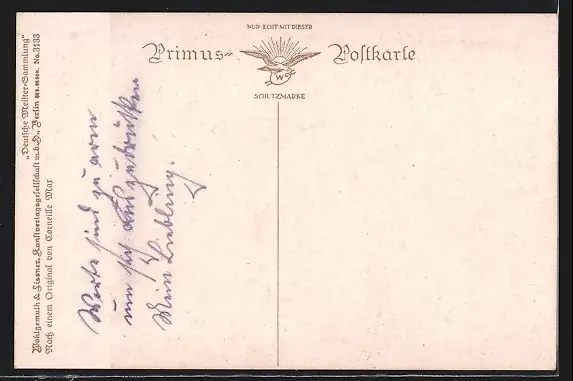 NUR ECHT MIT DIESER
Primus-Postkarte
W
SCHUTZMARKE
„Deutsche Meister-Sammlung“
Wohlgemuth & Lissner, Kunstverlagsgesellschaft m.b.H., Berlin No. 3133
Nach einem Original von Corneille Max
Worte sind zu arm
um sich auszudrücken
Mein Liebling.